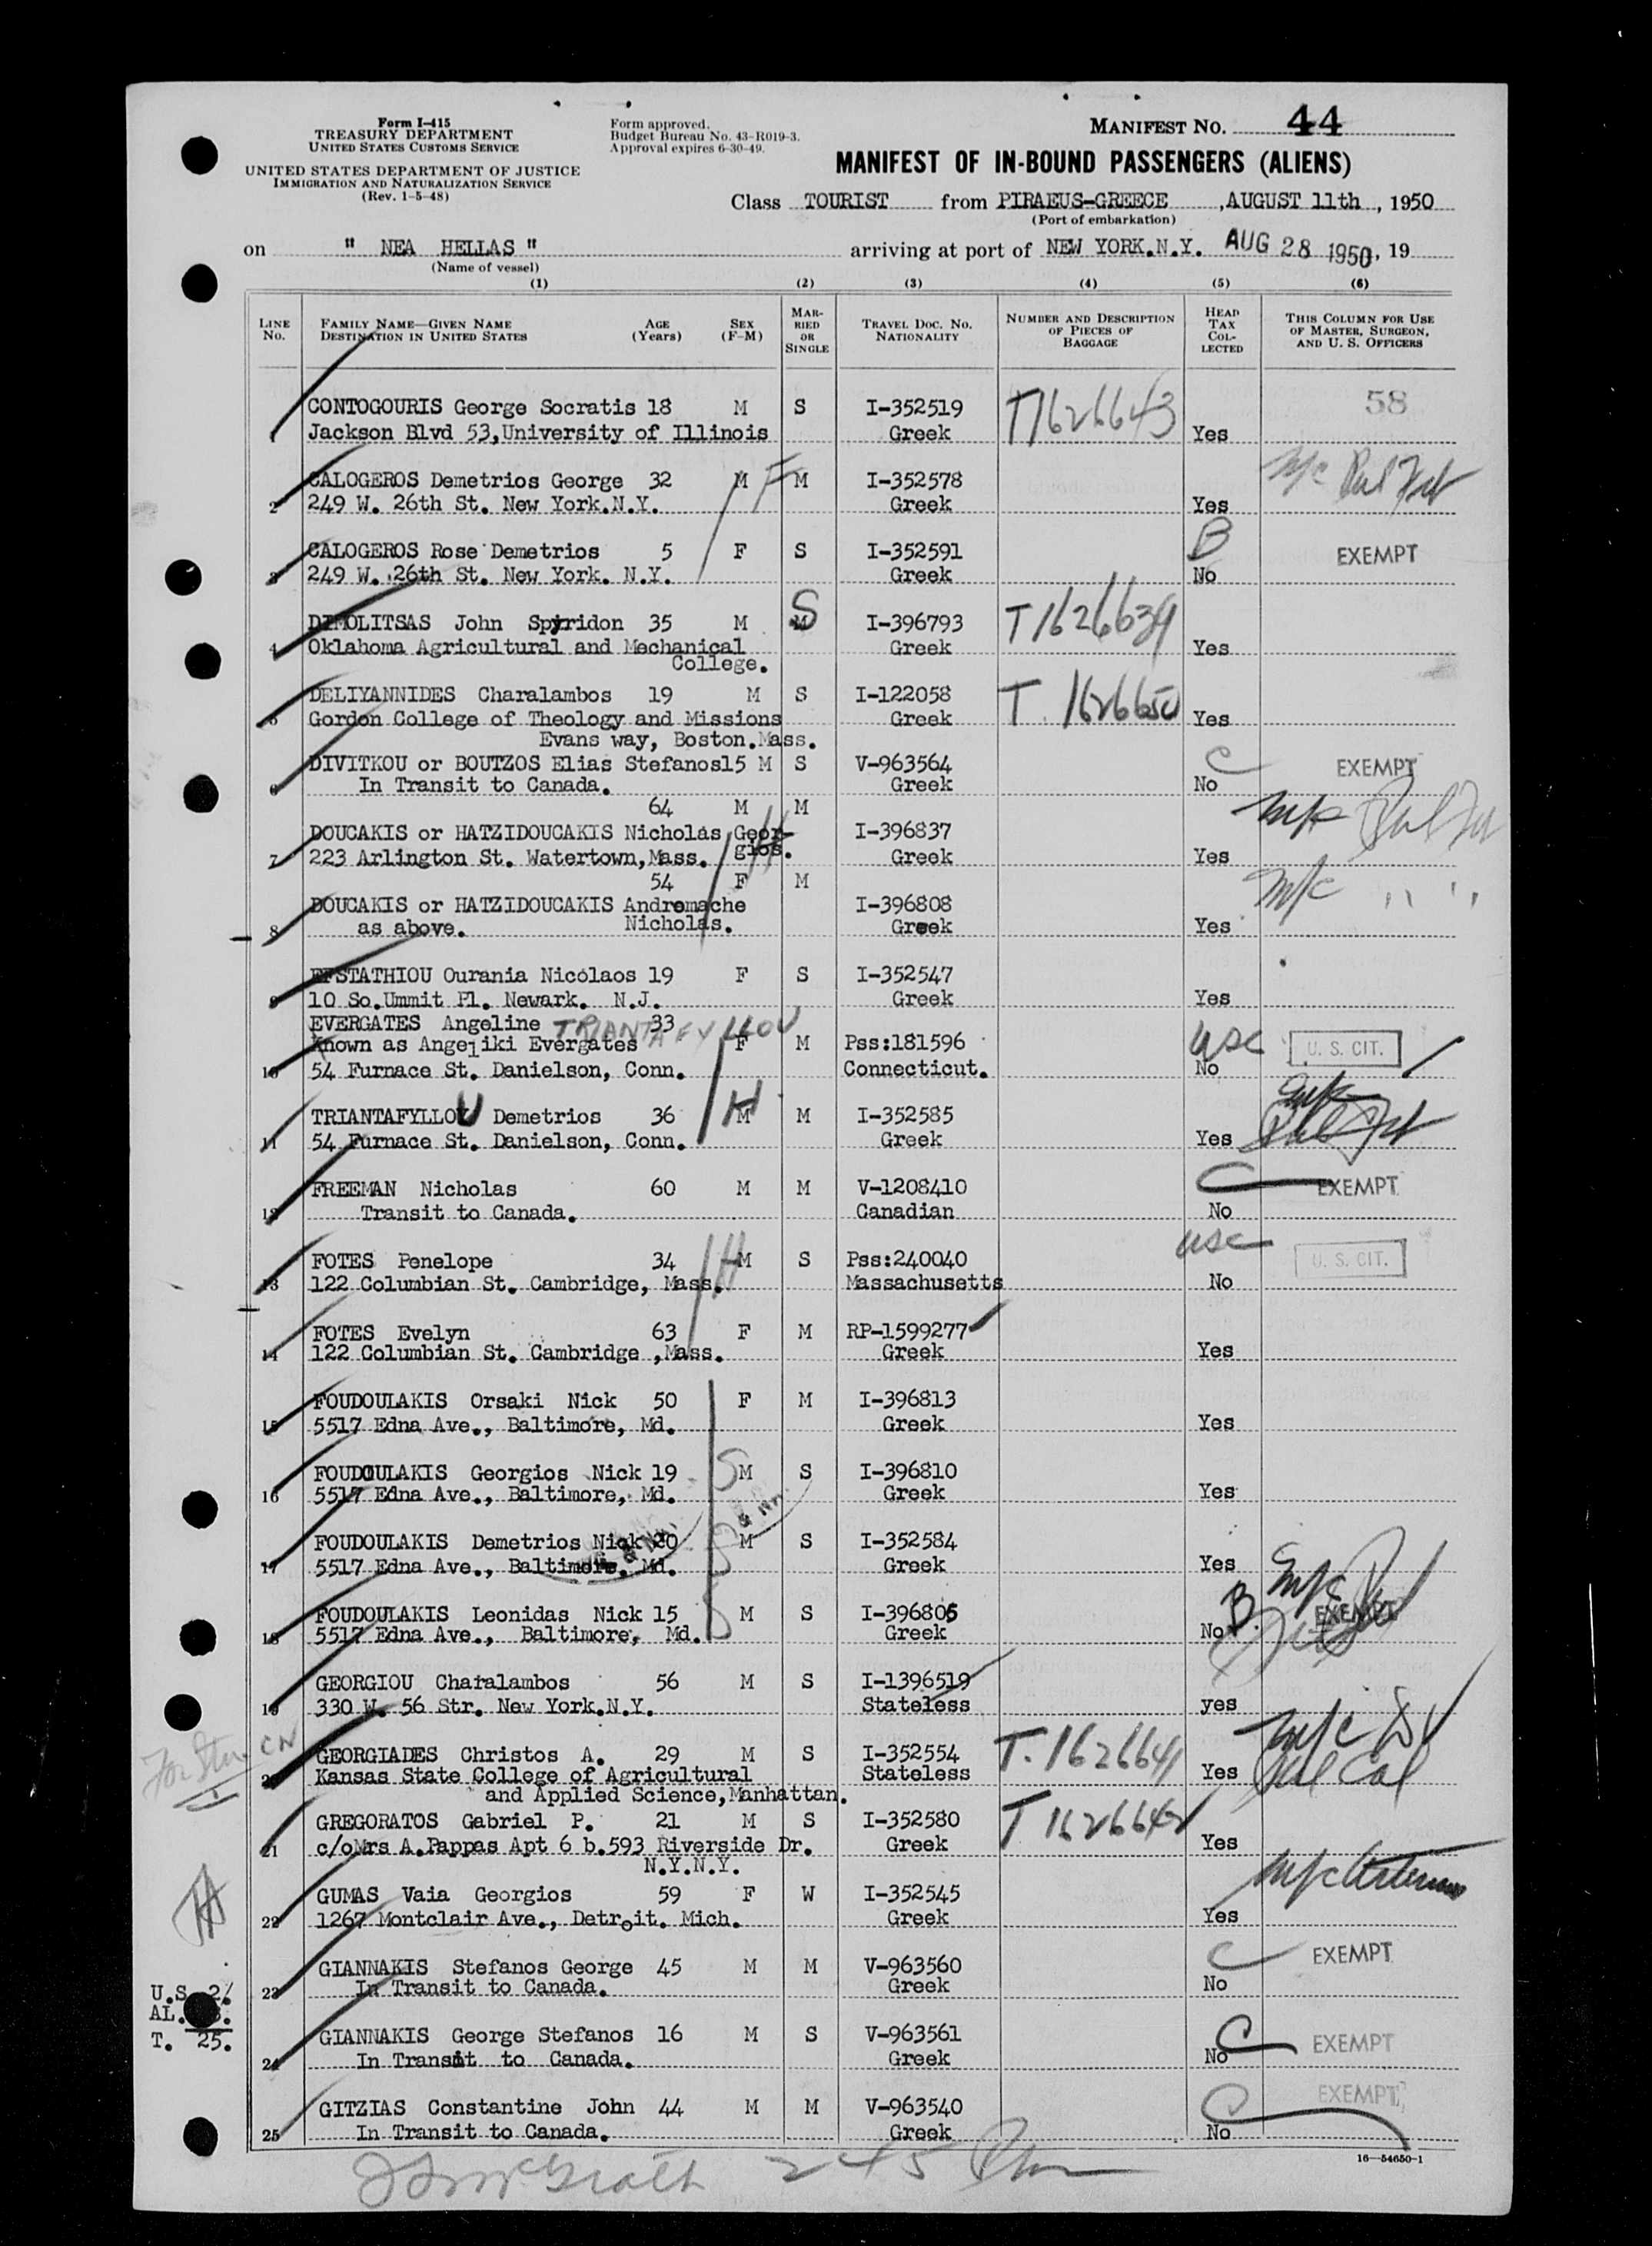 Form I-415
TREASURY DEPARTMENT
UNITED STATES CUSTOMS SERVICE
UNITED STATES DEPARTMENT OF JUSTICE
IMMIGRATION AND NATURALIZATION SERVICE
(Rev. 1-5-48)
Form approved.
Budget Bureau No. 43-R019-3.
Approval expires 6-30-49.
MANIFEST NO. 44
MANIFEST OF IN-BOUND PASSENGERS (ALIENS)
Class TOURIST from PIRAEUS-GREECE, AUGUST 11th, 1950
(Port of embarkation)
on " NEA HELLAS " arriving at port of NEW YORK.N.Y. AUG 28 1950, 19
(Name of vessel)
(1) (2) (3) (4) (5) (6)
LINE No. FAMILY NAME—GIVEN NAME DESTINATION IN UNITED STATES AGE (Years) SEX (F-M) MARRIED OR SINGLE TRAVEL DOC. NO. NATIONALITY NUMBER AND DESCRIPTION OF PIECES OF BAGGAGE HEAD TAX COLLECTED THIS COLUMN FOR USE OF MASTER, SURGEON, AND U. S. OFFICERS
58
CONTOGOURIS George Socratis 18 M S I-352519 T1626643
1 Jackson Blvd 53,University of Illinois Greek Yes
CALOGEROS Demetrios George 32 M F M I-352578
2 249 W. 26th St. New York.N.Y. Greek Yes
CALOGEROS Rose Demetrios 5 F S I-352591 B EXEMPT
3 249 W. 26th St. New York. N.Y. Greek No
DIMOLITSAS John Spyridon 35 M S I-396793 T1626639
4 Oklahoma Agricultural and Mechanical Greek Yes
College.
DELIYANNIDES Charalambos 19 M S I-122058 T. 1626650
5 Gordon College of Theology and Missions Greek Yes
Evans way, Boston.Mass.
DIVITKOU or BOUTZOS Elias Stefanos15 M S V-963564 C EXEMPT
6 In Transit to Canada. Greek No
64 M M
DOUCAKIS or HATZIDOUCAKIS Nicholas Geor- I-396837
gios.
7 223 Arlington St. Watertown,Mass. Greek Yes
54 F M
DOUCAKIS or HATZIDOUCAKIS Andromache I-396808
8 as above. Nicholas. Greek Yes
EFSTATHIOU Ourania Nicolaos 19 F S I-352547
9 10 So.Ummit Pl. Newark. N.J. Greek Yes
EVERGATES Angeline TRIANTAFYLLOU 33
Known as Angeliki Evergates F M Pss:181596 USC U. S. CIT.
10 54 Furnace St. Danielson, Conn. Connecticut. No
TRIANTAFYLLOU Demetrios 36 M H M I-352585
11 54 Furnace St. Danielson, Conn. Greek Yes
FREEMAN Nicholas 60 M M V-1208410 C EXEMPT
12 Transit to Canada. Canadian No
FOTES Penelope 34 H M S Pss:240040 USC U. S. CIT.
13 122 Columbian St. Cambridge, Mass. Massachusetts No
FOTES Evelyn 63 F M RP-1599277
14 122 Columbian St. Cambridge ,Mass. Greek Yes
FOUDOULAKIS Orsaki Nick 50 F M I-396813
15 5517 Edna Ave., Baltimore, Md. Greek Yes
FOUDOULAKIS Georgios Nick 19 S M S I-396810
16 5517 Edna Ave., Baltimore, Md. Greek Yes
FOUDOULAKIS Demetrios Nick 20 M S I-352584
17 5517 Edna Ave., Baltimore. Md. Greek Yes
FOUDOULAKIS Leonidas Nick 15 M S I-396805 B. EXEMPT
18 5517 Edna Ave., Baltimore, Md. Greek No
GEORGIOU Charalambos 56 M S I-1396519
19 330 W. 56 Str. New York.N.Y. Stateless yes
GEORGIADES Christos A. 29 M S I-352554 T. 1626641
20 Kansas State College of Agricultural Stateless Yes
and Applied Science,Manhattan.
GREGORATOS Gabriel P. 21 M S I-352580 T 1626642
21 c/oMrs A.Pappas Apt 6 b.593 Riverside Dr. Greek Yes
N.Y.N.Y.
GUMAS Vaia Georgios 59 F W I-352545
22 1267 Montclair Ave., Detroit. Mich. Greek Yes
GIANNAKIS Stefanos George 45 M M V-963560 C EXEMPT
23 In Transit to Canada. Greek No
U.S. 2/
AL.
T. 25.
GIANNAKIS George Stefanos 16 M S V-963561 C EXEMPT
24 In Transit to Canada. Greek No
GITZIAS Constantine John 44 M M V-963540 C EXEMPT
25 In Transit to Canada. Greek No
245 Pm
16—54650-1